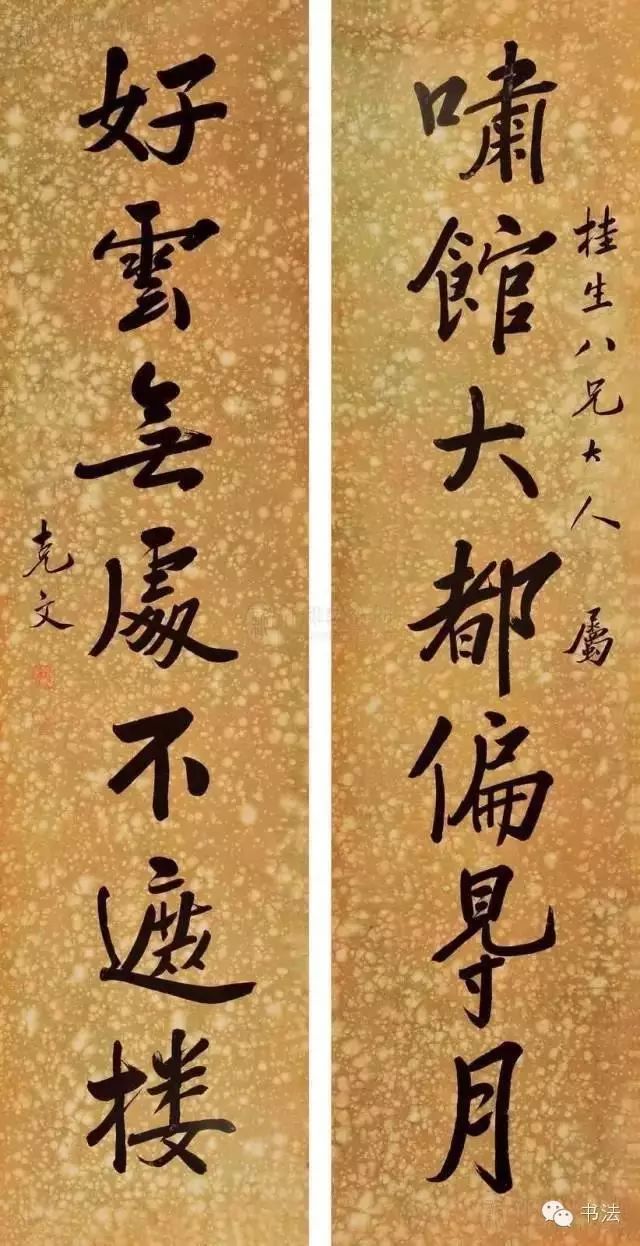 桂生八兄大人 屬
嘯館大都偏㝵月
好雲無處不遮楼
克文
书法